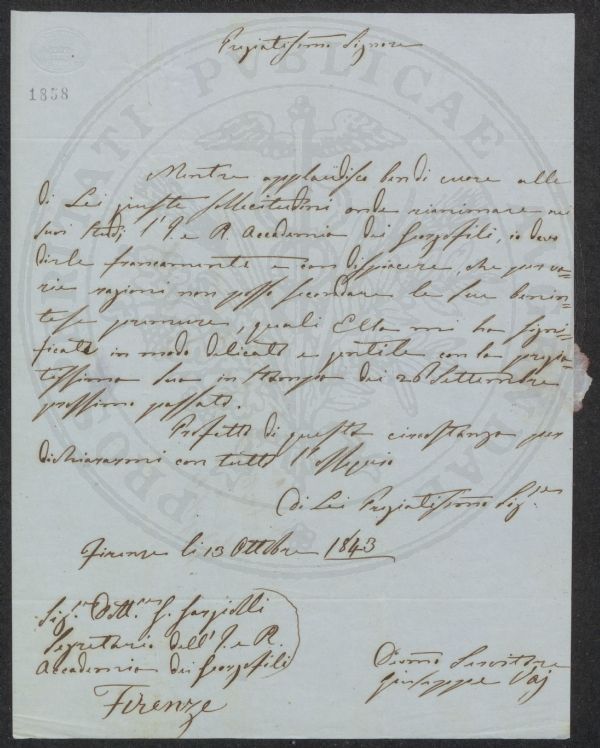 Pregiatissimo Signore
1858
Mentre applaudisco di cuore alle
di Lei giuste sollecitudini onde rianimare nei
suoi studj l'I. e R. Accademia dei Georgofili, io devo
dirle francamente e con dispiacere, che per va-
rie ragioni non posso secondare le sue benin-
tese premure, quali Ella mi ha signi-
ficate in modo delicato e gentile con la pregia-
tissima sua in stampa dei 26 Settembre
prossimo passato.
Profitto di questa circostanza per
dichiararmi con tutto l'ossequio
di Lei Pregiatissimo Sig.re
Firenze li 13 Ottobre 1843
Sig.re Dott.re
Segretario dell'I. e R.
Accademia dei Georgofili
Firenze
Devmo Servitore
Giuseppe Vaj
PROSPERITATI PVBLICAE AVGENDAE